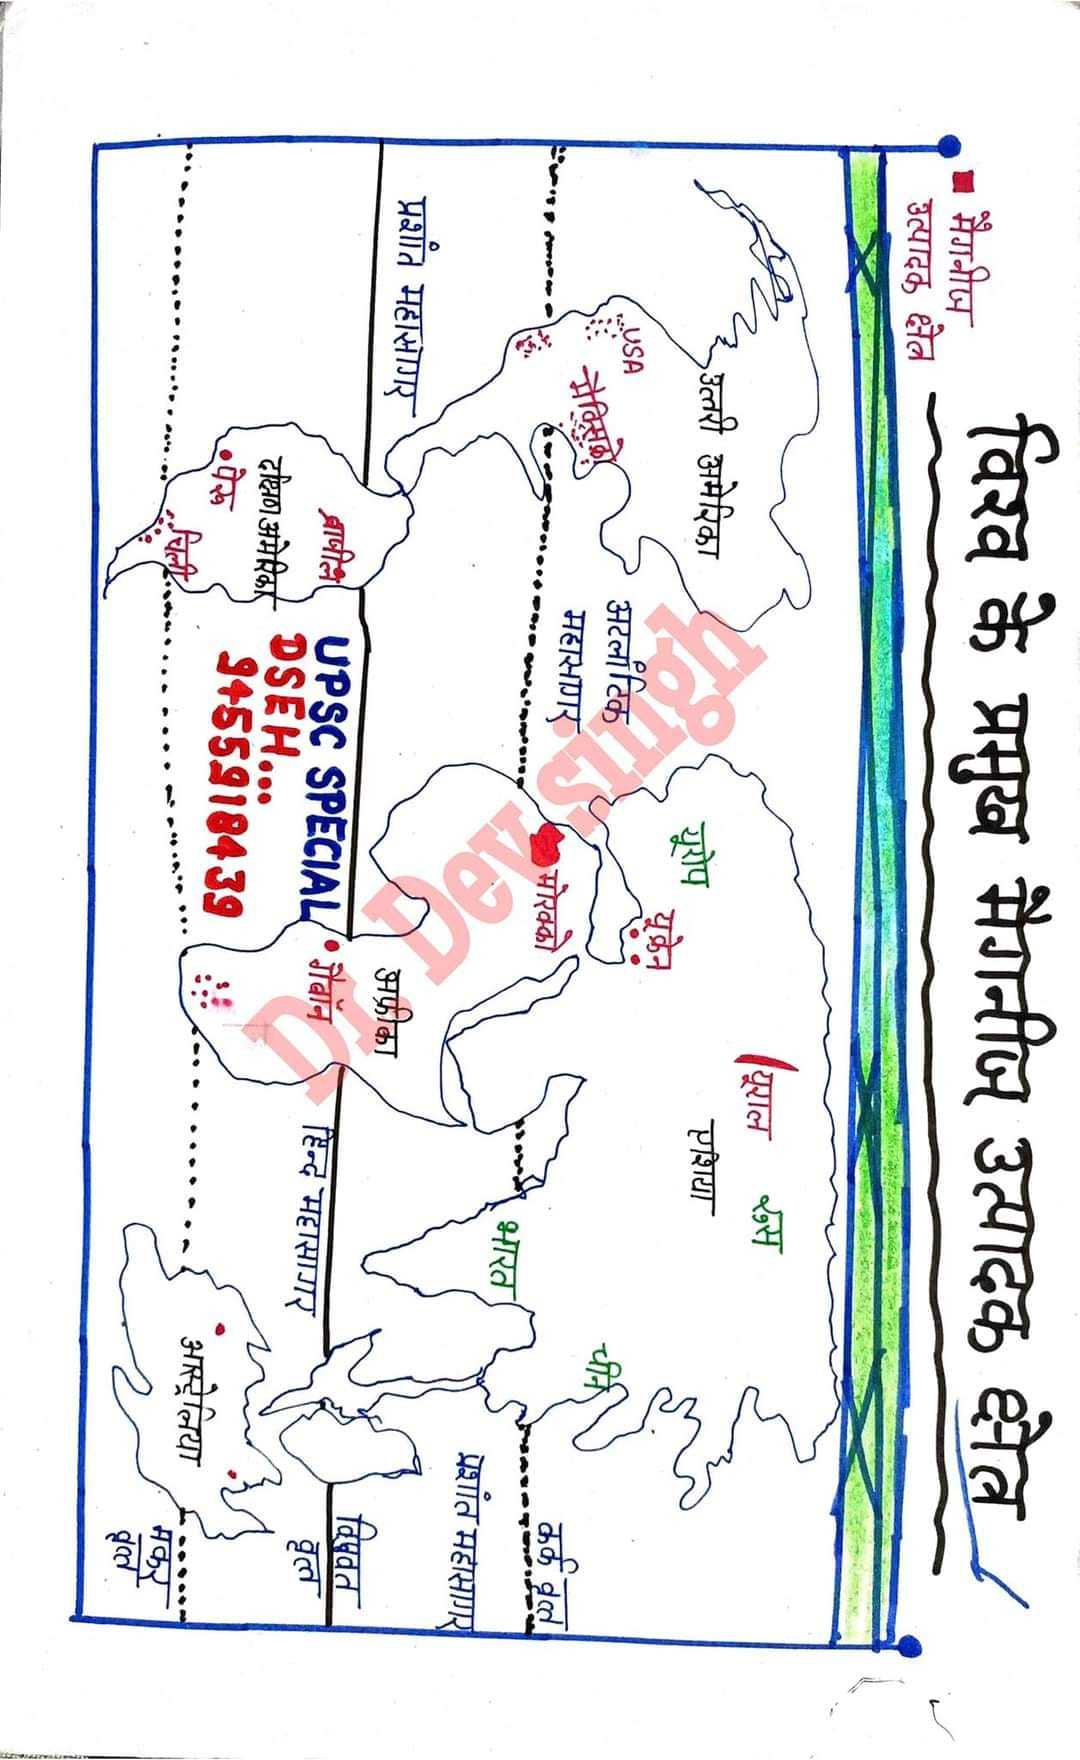 विश्व के प्रमुख मैंगनीज उत्पादक क्षेत्र
मैंगनीज
उत्पादक क्षेत्र
उत्तरी अमेरिका
USA
मैक्सिको
प्रशांत महासागर
अटलांटिक
महासागर
दक्षिण अमेरिका
ब्राजील
पेरू
चिली
यूरोप
यूक्रेन
यूराल
रूस
एशिया
मोरक्को
अफ्रीका
गेबॉन
भारत
चीन
हिन्द महासागर
प्रशांत महासागर
आस्ट्रेलिया
कर्क वृत्त
विषुवत
वृत्त
मकर
वृत्त
UPSC SPECIAL
DSEH...
9455918439
Dr. Dev singh